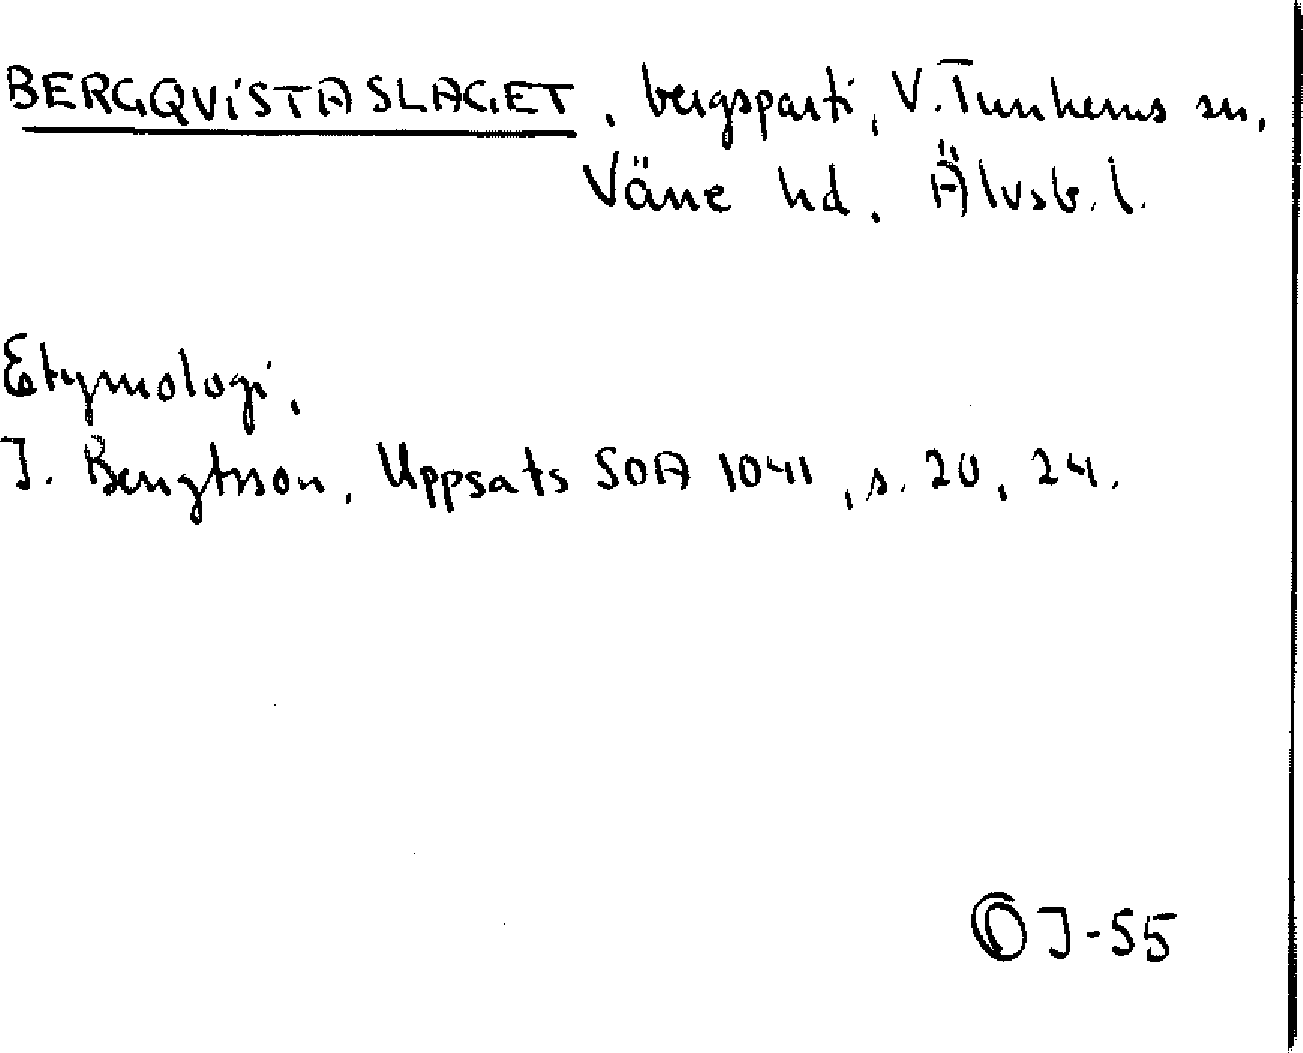 BERGQVISTASLAGET, bergsparti, V. Tunhems sn,
Väne hd. Älvsb. l.
Etymologi.
J. Bengtsson, Uppsats SOA 1041, s. 20, 24.
OJ-55